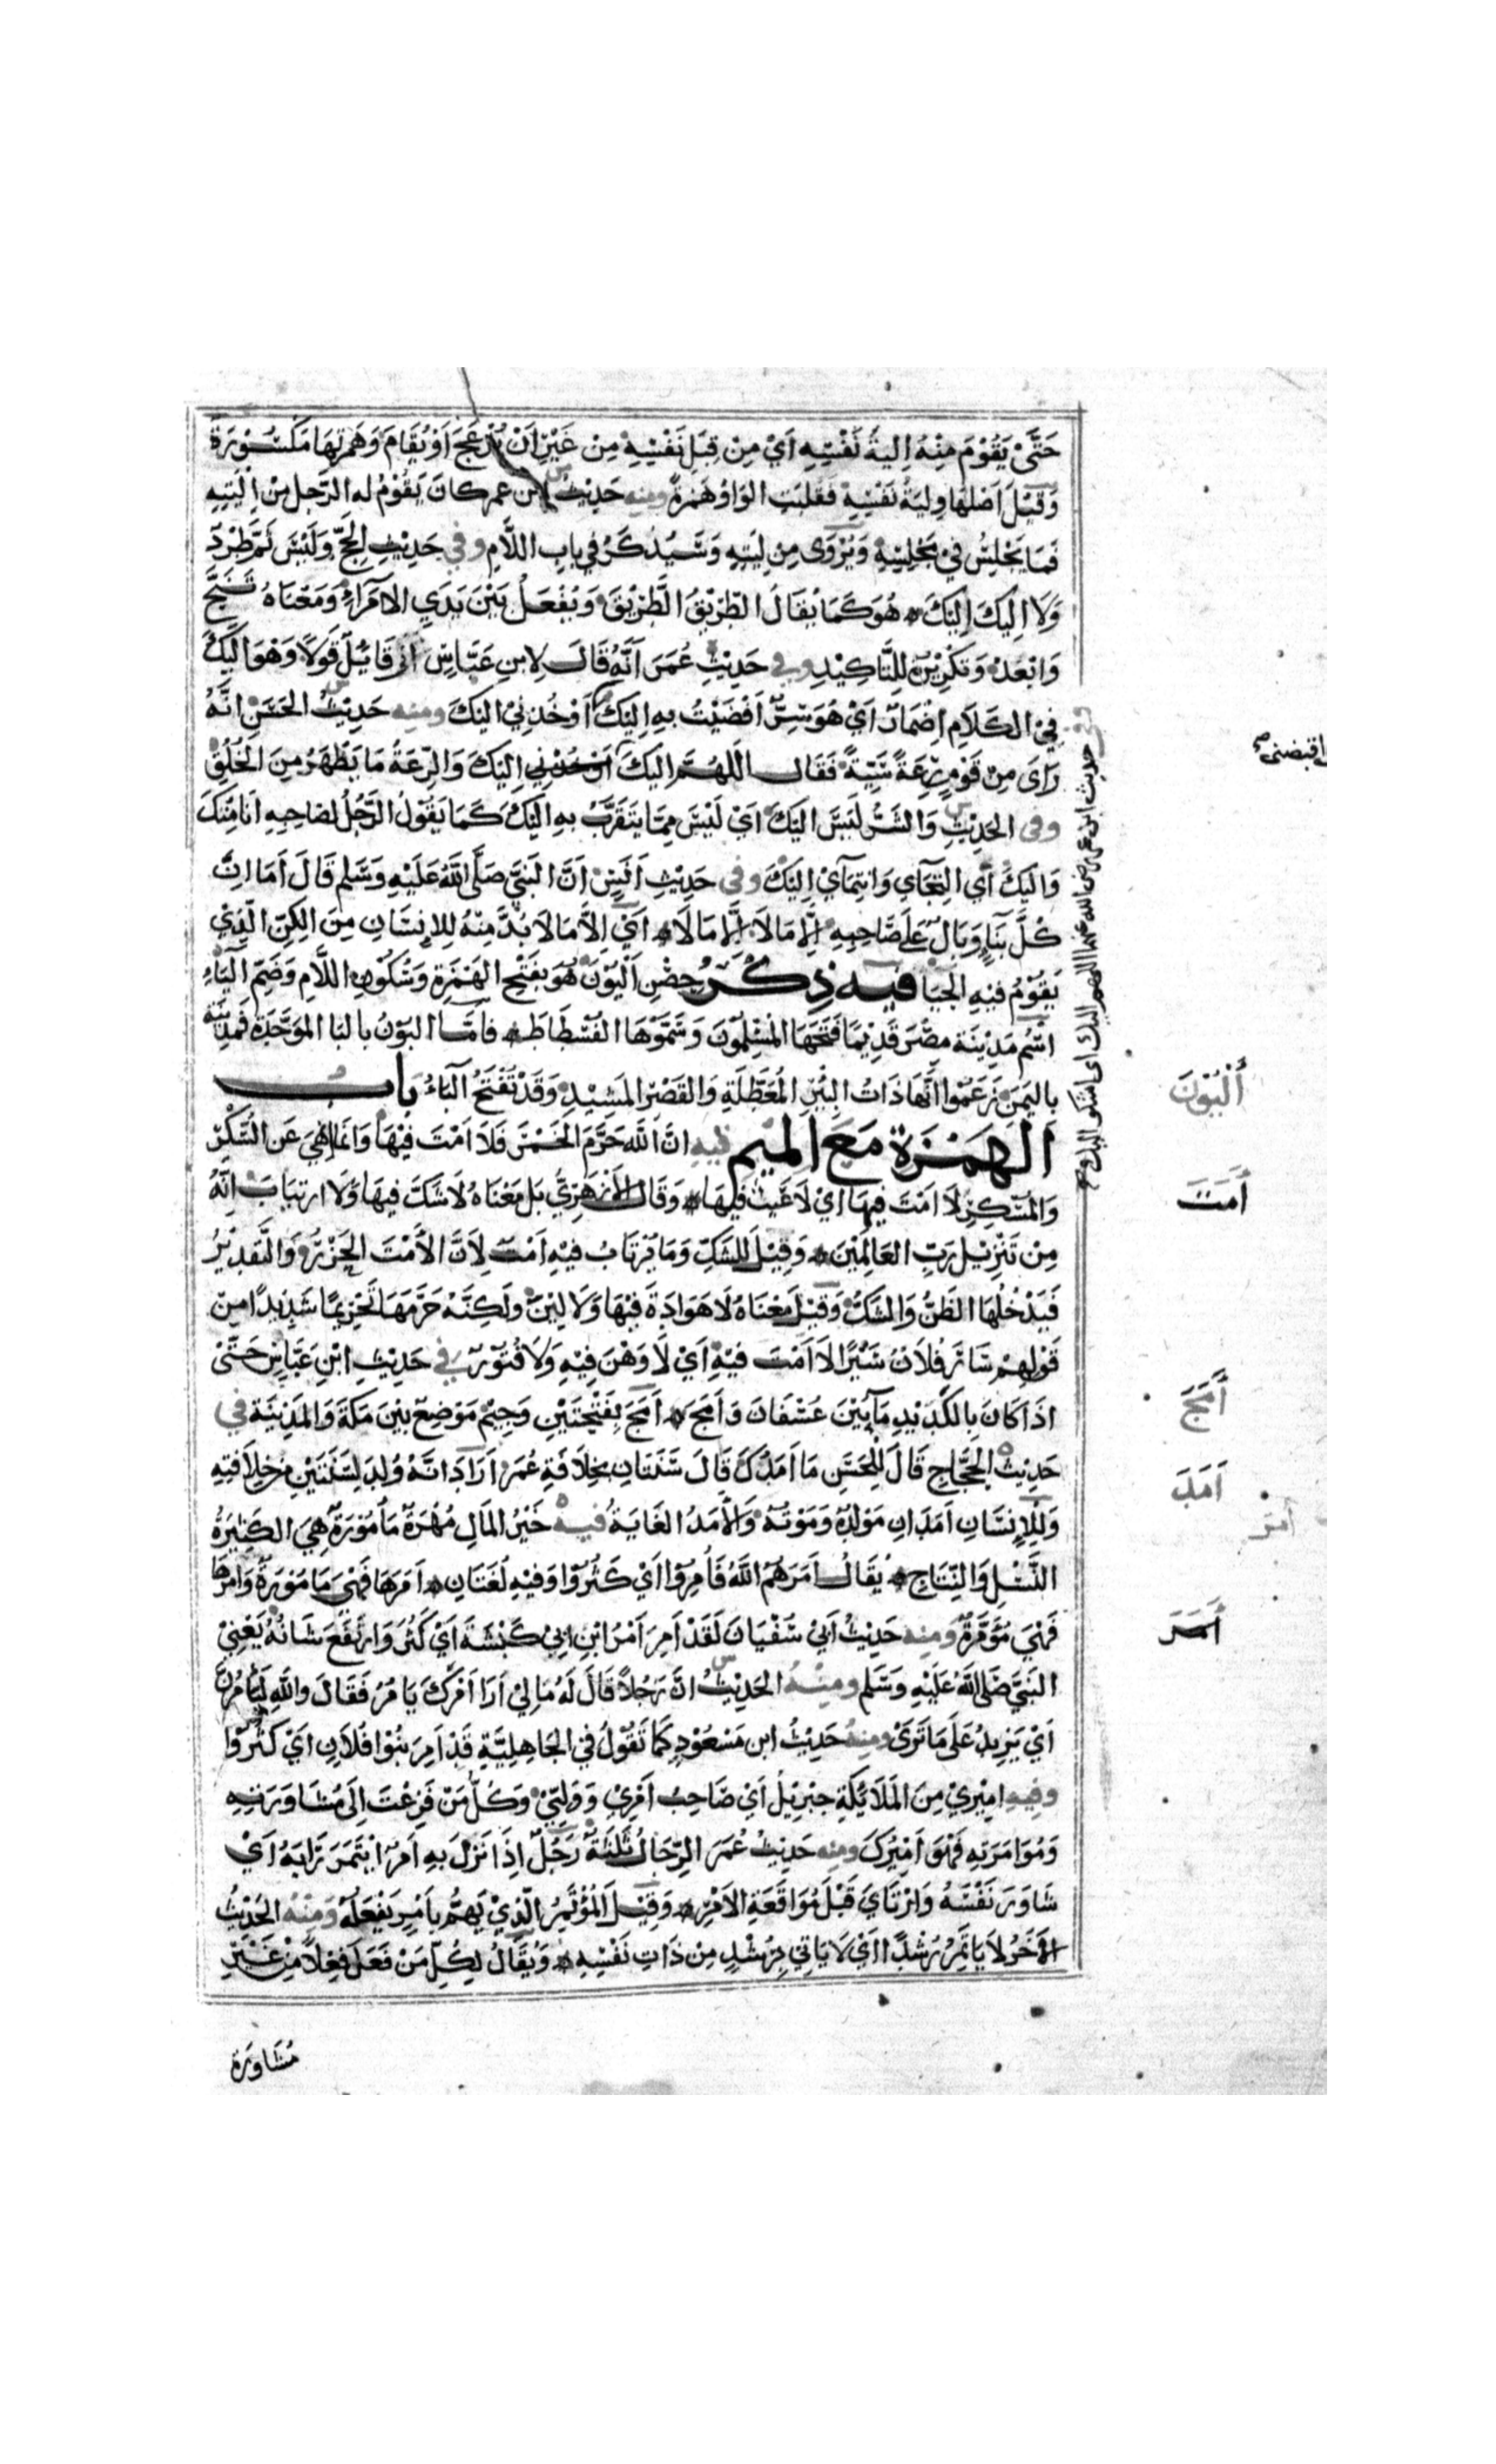 حَتَّىٰ يَقُوْمَ مِنْهُ اِلِيَةُ نَفْسِهِ اَيْ مِنْ قِبَلِ نَفْسِهِ مِنْ غَيْرِ اَنْ يُزْعَجَ اَوْ يُقَامَ وَهَمْزَتُهَا مَكْسُوْرَةٌ
وَقِيْلَ اَصْلُهَا وِلِيَةُ نَفْسِهِ فَقُلِبَتِ الوَاوُ هَمْزَةً ومنه حَدِيْثُ ابن عمر كانَ يَقُوْمُ له الرَّجل مِنْ اِلْيَتِهِ
فَمَا يَجْلِسُ فِي مَجْلِسِهِ وَيُرْوٰى مِنْ لِيَتِهِ وَسَيُذْكَرُ فِي بابِ اللَّامِ وفي حَدِيْثِ الحَجِّ وَلَيْسَ ثَمَّ طَرْدٌ
وَلَا اِلَيْكَ اِلَيْكَ هُوَ كَمَا يُقَالُ الطَّرِيْقَ الطَّرِيْقَ وَيُفْعَلُ بَيْنَ يَدَيِ الامَرَاءِ وَمَعْنَاهُ تَنَحَّ
وَابْعُدْ وَتَكْرِيْرُهُ لِلتَّاكِيْدِ وفي حَدِيْثِ عُمَرَ اَنَّهُ قَالَ لِابنِ عَبَّاسٍ اِنِّي قَائِلٌ قَوْلاً وَهُوَ اِلَيْكَ
فِي الكَلَامِ اِضْمَارٌ اَيْ هُوَ سِرٌّ اَفْضَيْتُ بِهِ اِلَيْكَ اَوْ خُذْنِيْ اليْكَ ومنه حَدِيْثُ الحَسَنِ اَنَّهُ
رَاىَ مِنْ قَوْمٍ رِعَةً سَيِّئَةً فَقَالَ اَللّٰهُمَّ اِلَيْكَ اَيْ خُذْنِي اِلَيْكَ وَالرِّعَةُ مَا يَظْهَرُ مِنَ الخُلُقِ
وفى الحَدِيْثِ وَالشَّرُّ لَيْسَ اليْكَ اَيْ لَيْسَ مِمَّا يُتَقَرَّبُ بِهِ اِلَيْكَ كَمَا يَقُوْلُ الرَّجُلُ لِصَاحِبِهِ اَنَا مِنْكَ
وَاِلَيْكَ اَيْ التِجَاي وَانتِمَآيْ اِلَيْكَ وفى حَدِيْثِ اَنَسٍ اَنَّ النَبِيَّ صَلَّى اللّٰهُ عَلَيْهِ وَسَلَّم قَالَ اَمَا اِنَّ
كُلَّ بِنَآءٍ وَبَالٌ عَلَى صَاحِبِهِ اِلَّا مَا لَا اِلَّا مَا لَا اَيْ اِلَّا مَا لَا بُدَّ مِنْهُ لِلاِنْسَانِ مِنَ الكِنِّ الَّذِيْ
يَقُوْمُ فِيْهِ الحَيَا فيه ذِكْرُ حِصْنِ اَلْيُوْنَ هُوَ بِفَتْحِ الهَمْزَةِ وَسُكُوْنِ اللَّامِ وَضَمِّ اليَاءِ
اسْمُ مَدِيْنَة مِصْرَ قَدِيْمًا فَتَحَهَا المُسْلِمُوْنَ وَسَمَّوْهَا الفُسْطَاطَ فامَّا البُوْنُ بالبا المُوَحَّدَةِ فَمَدِيْنَة
بِاليَمَنِ زَعَمُوْا اَنَّهَا ذَاتُ البِئْرِ المُعَطَّلَةِ وَالقَصْرِ المَشِيْدِ وَقَدْ تُفْتَحُ البَاءُ بابُ
الهَمْزَة مَعَ المِيْم فيه انَّ اللّٰهَ حَرَّمَ الخَمْرَ فَلَا اَمْتَ فِيْهَا وَاِنَّمَا نَهٰى عَنِ السُّكْرِ
وَالمُسْكِرِ لَا اَمْتَ فِيهَا اَيْ لَا عَيْبَ فِيْهَا وَقَالَ الاَزْهَرِيُّ بَلْ مَعْنَاهُ لَا شَكَّ فِيهَا وَلَا ارتِيَابَ اَنَّهُ
مِنْ تَنْزِيْلِ رَبِّ العَالَمِيْنَ وَقِيْلَ لِلشَكِّ وَمَا يُرْتَابُ فِيْهِ اَمْتٌ لِاَنَّ الاَمْتَ الحَزْرُ وَالتَّقْدِيْرُ
فَيَدْخُلُهَا الظَنُّ وَالشَكُّ وَقِيْلَ مَعْنَاهُ لَا هَوَادَةَ فِيْهَا وَلَا لِيْنَ ولَكِنَّهُ حَرَّمَهَا تَحْرِيْمًا شَدِيْدًا مِنْ
قَوْلِهِمْ سَارَ فُلاَنٌ سَيْرًا لاَ اَمْتَ فِيْهِ اَيْ لَا وَهْنَ فِيْهِ وَلَا فُتُوْرَ في حَدِيْثِ ابْنِ عَبَّاسٍ حَتَّىٰ
اذَا كَانَ بِالكَدِيْدِ مَاءٌ بَيْنَ عُسْفَانَ وَ اَمَجَ اَمَجُ بِفَتْحَتَيْنِ وَجِيْمٍ مَوْضِعٌ بَيْنَ مَكَّةَ وَالمَدِيْنَةِ في
حَدِيْثِ الحَجَّاجِ قَالَ لِلْحَسَنِ مَا اَمَدُكَ قَالَ سَنَتَانِ بخِلاَفَةِ عُمَرَ اَرَادَ اَنَّهُ وُلِدَ لِسَنَتَيْنِ مِنْ خِلَافَتِهِ
وَلِلاِنْسَانِ اَمَدَانِ مَوْلِدُهُ وَمَوْتُهُ وَالْاَمَدُ الغَايَةُ فيه خَيْرُ المَالِ مُهْرَةٌ مَأْمُوْرَةٌ هِيَ الكَثِيْرَةُ
النَّسْلِ وَالنِّتَاجِ يُقَالُ اَمَرَهُمُ اللّٰهُ فَاَمِرُوْا اَيْ كَثُرُوْا وَفِيْهِ لُغَتَانِ اَمَرَهَا فَهْيَ مَامُوْرَةٌ وَاٰمَرَهَا
فَهْيَ مُؤْمَرَةٌ ومنه حَدِيْثُ اَبِيْ سُفْيَانَ لَقَدْ اَمِرَ اَمْرُ ابْنِ اَبِيْ كَبْشَةَ اَيْ كَثُرَ وَارْتَفَعَ شَانُهُ يَعْنِيْ
النَبِيَّ صَلَّى اللّٰهُ عَلَيْهِ وَسَلَّم ومنه الحَدِيْثُ اَنَّ رَجُلاً قَالَ لَهُ مَا لِيْ اَرَا اَمْرَكَ يَامَرُ فَقَالَ وَاللّٰهِ لَيَأْمَرَنَّ
اَيْ يَزِيْدُ عَلَى مَا تَرَىٰ ومنه حَدِيْثُ ابن مَسْعُوْدٍ كُنَّا نَقُوْلُ فِي الجَاهِلِيَّةِ قَدْ اَمِرَ بَنُوْا فُلَانٍ اَيْ كَثُرُوْا
وفيه امِيْرِيْ مِنَ المَلَائِكَةِ جِبْرِيْلُ اَيْ صَاحِبُ اَمْرِيْ وَوَلِيّ وَكُلُّ مَنْ فَزِعْتَ اِلَى مُشَاوَرَتِهِ
وَمُوَامَرَتِهِ فَهْوَ اَمِيْرُكَ ومنه حَدِيْثُ عُمَرَ الرِّجَالُ ثَلٰثَةٌ رَجُلٌ اِذَا نَزَلَ بِهِ اَمْرٌ ايتَمَرَ رَايَهُ اَيْ
شَاوَرَ نَفْسَهُ وَارْتَاىَ قَبْلَ مُوَاقَعَةِ الاَمْرِ وَقِيْلَ المُؤْتَمِرُ الَّذِيْ يَهُمُّ بِاَمْرٍ يَفْعَلُهُ ومنه الحَدِيْثُ
الْاٰخَرُ لَا يَاتَمِرُ رُشْدًا اَيْ لَا يَاتِي بِرُشْدٍ مِنْ ذَاتِ نَفْسِهِ وَيُقَالُ لِكُلِّ مَنْ فَعَلَ فِعْلاً مِنْ غَيْرِ
مُشَاوَرَة
وفي حديث ابن عمر رضى الله عنهما اللهم اليك اى اشكو اليك
اقبضنى
أَلْيُوْنَ
أَمَتَ
أَمَجَ
اَمَدَ
امَرَ
أَمَرَ